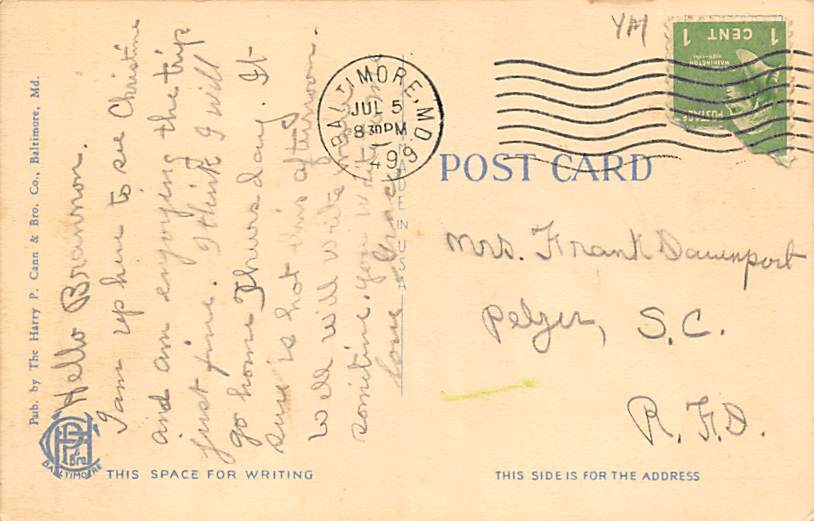 Pub. by The Harry P. Cann & Bro. Co., Baltimore, Md.
Hello Brannon.
I am up here to see Christine
and am enjoying the trip
just fine. I think I will
go home Thursday. It
sure is hot this afternoon.
Well will write more
sometime. you write me
love Grace
THIS SPACE FOR WRITING
BALTIMORE
& Bro.
MADE IN U.S.
BALTIMORE, MD.
JUL 5
8 30 PM
1949
YM
1 CENT 1
WASHINGTON
POSTAGE
POST CARD
Mrs. Frank Davenport
Pelzer, S.C.
R.F.D.
THIS SIDE IS FOR THE ADDRESS